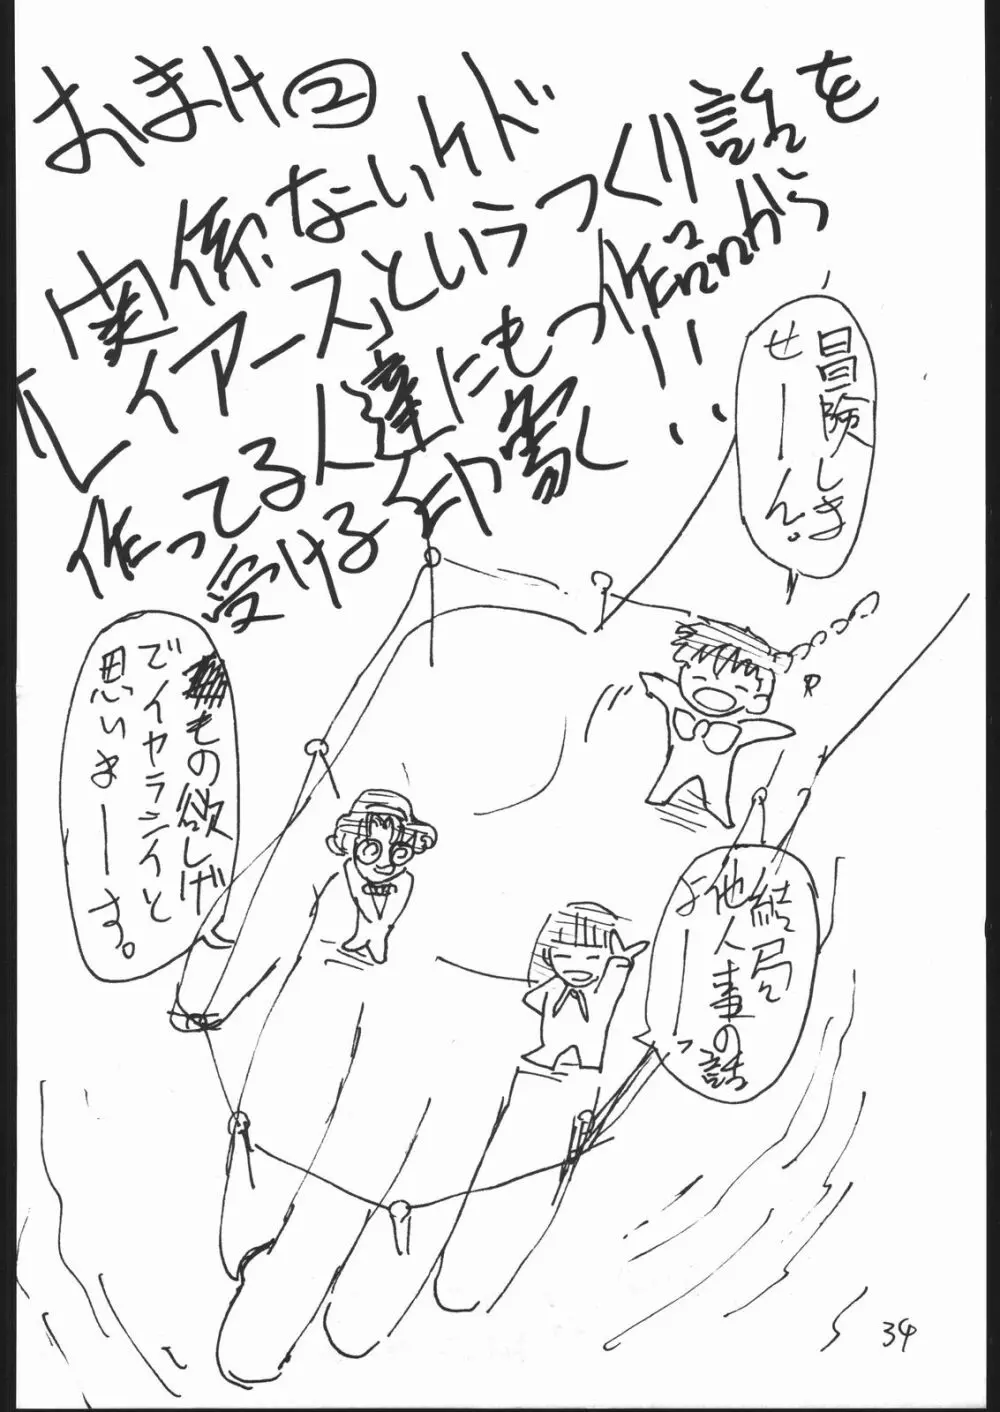 おまけ②
関係ないケド
「レイアース」というつくり話を
作ってる人達にもつ作品から
受ける印象!!
冒険しま
せーん。
もの欲しげ
でイヤラシイと
思いまーす。
結局
他人事の話
よーっ
R
34